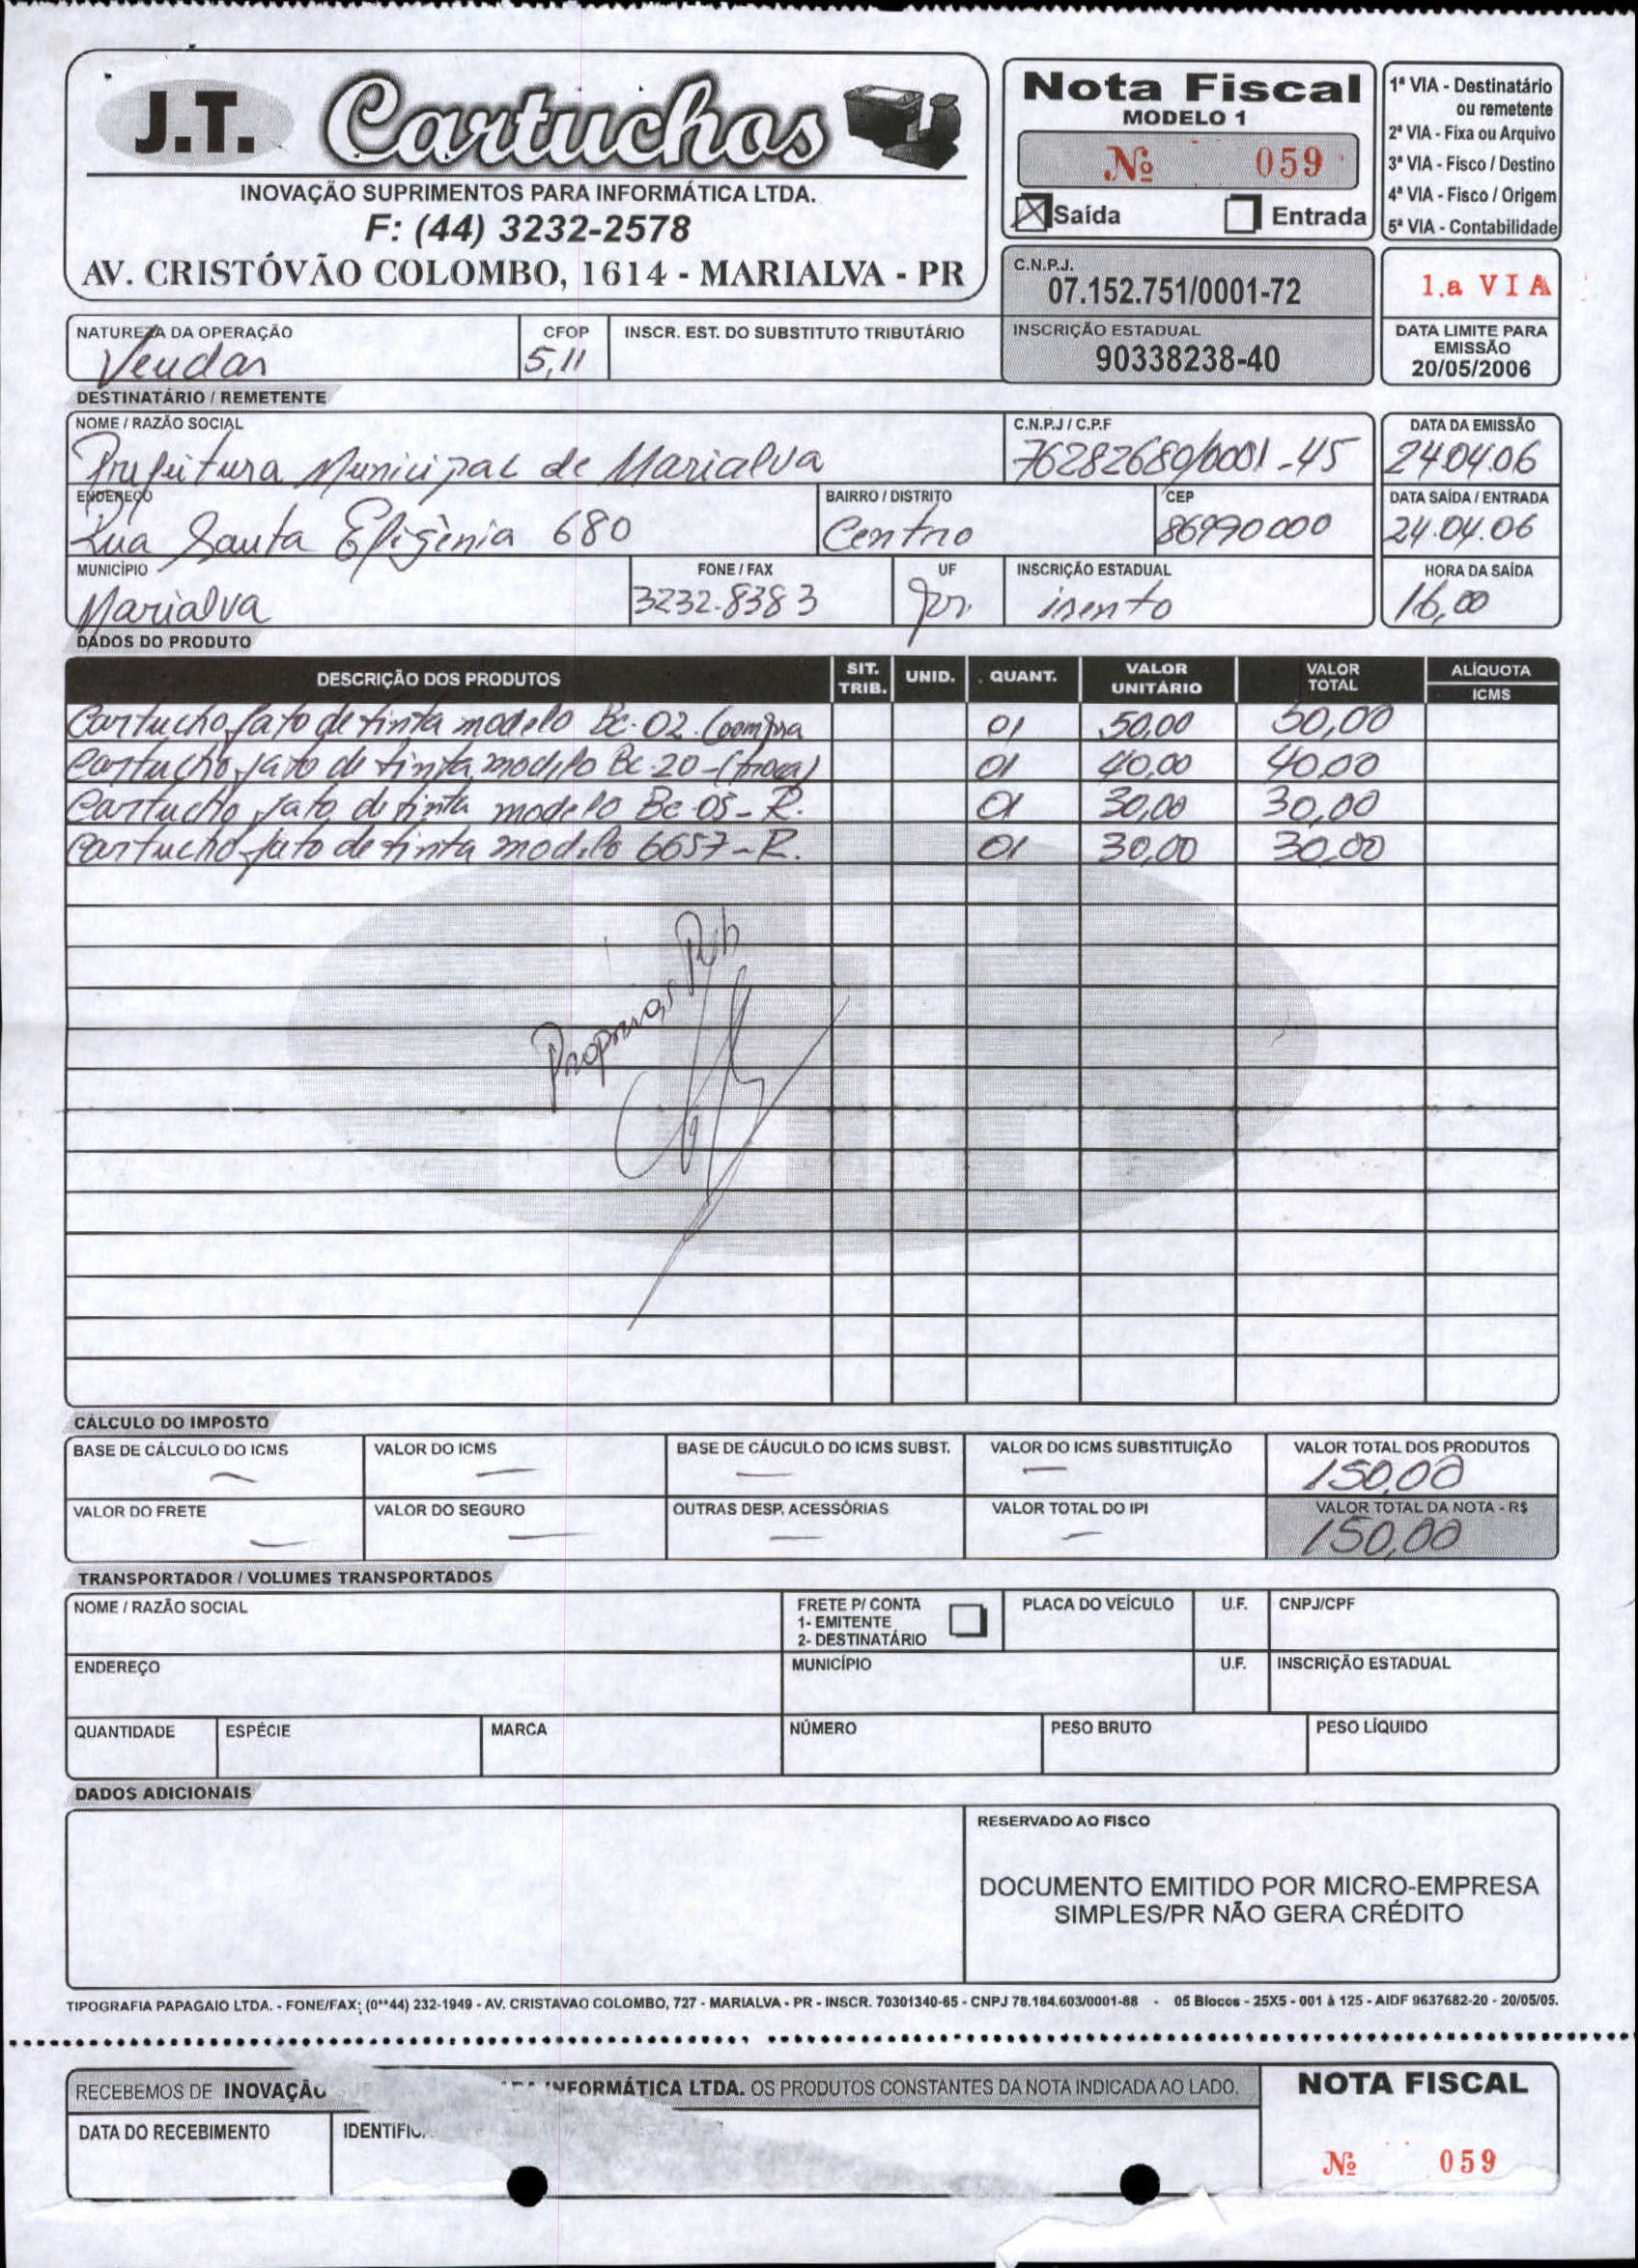 J.T. Cartuchos
INOVAÇÃO SUPRIMENTOS PARA INFORMÁTICA LTDA.
F: (44) 3232-2578
AV. CRISTÓVÃO COLOMBO, 1614 - MARIALVA - PR
Nota Fiscal
MODELO 1
Nº 059
Saída Entrada
1ª VIA - Destinatário
ou remetente
2ª VIA - Fixa ou Arquivo
3ª VIA - Fisco / Destino
4ª VIA - Fisco / Origem
5ª VIA - Contabilidade
C.N.P.J.
07.152.751/0001-72
1.a VIA
NATUREZA DA OPERAÇÃO CFOP INSCR. EST. DO SUBSTITUTO TRIBUTÁRIO
Vendas 5,11
INSCRIÇÃO ESTADUAL
90338238-40
DATA LIMITE PARA
EMISSÃO
20/05/2006
DESTINATÁRIO / REMETENTE
NOME / RAZÃO SOCIAL C.N.P.J / C.P.F DATA DA EMISSÃO
Prefeitura Municipal de Marialva 76282680/0001-45 24.04.06
ENDEREÇO BAIRRO / DISTRITO CEP DATA SAÍDA / ENTRADA
Rua Santa Efigênia 680 Centro 86990000 24.04.06
MUNICÍPIO FONE / FAX UF INSCRIÇÃO ESTADUAL HORA DA SAÍDA
Marialva 3232-8383 pr. isento 16,00
DADOS DO PRODUTO
DESCRIÇÃO DOS PRODUTOS SIT. TRIB. UNID. QUANT. VALOR UNITÁRIO VALOR TOTAL ALÍQUOTA ICMS
Cartucho jato de tinta modelo Bc-02-(compra 01 50,00 50,00
Cartucho jato de tinta modelo Bc-20-(troca) 01 40,00 40,00
Cartucho jato de tinta modelo Bc-05-R. 01 30,00 30,00
Cartucho jato de tinta modelo 6657-R. 01 30,00 30,00
CÁLCULO DO IMPOSTO
BASE DE CÁLCULO DO ICMS VALOR DO ICMS BASE DE CÁUCULO DO ICMS SUBST. VALOR DO ICMS SUBSTITUIÇÃO VALOR TOTAL DOS PRODUTOS
— — — — 150,00
VALOR DO FRETE VALOR DO SEGURO OUTRAS DESP. ACESSÓRIAS VALOR TOTAL DO IPI VALOR TOTAL DA NOTA - R$
— — — — 150,00
TRANSPORTADOR / VOLUMES TRANSPORTADOS
NOME / RAZÃO SOCIAL FRETE P/ CONTA PLACA DO VEÍCULO U.F. CNPJ/CPF
1- EMITENTE
2- DESTINATÁRIO
ENDEREÇO MUNICÍPIO U.F. INSCRIÇÃO ESTADUAL
QUANTIDADE ESPÉCIE MARCA NÚMERO PESO BRUTO PESO LÍQUIDO
DADOS ADICIONAIS
RESERVADO AO FISCO
DOCUMENTO EMITIDO POR MICRO-EMPRESA
SIMPLES/PR NÃO GERA CRÉDITO
TIPOGRAFIA PAPAGAIO LTDA. - FONE/FAX: (0**44) 232-1949 - AV. CRISTAVAO COLOMBO, 727 - MARIALVA - PR - INSCR. 70301340-65 - CNPJ 78.184.603/0001-88 - 05 Blocos - 25X5 - 001 à 125 - AIDF 9637682-20 - 20/05/05.
RECEBEMOS DE INOVAÇÃO INFORMÁTICA LTDA. OS PRODUTOS CONSTANTES DA NOTA INDICADA AO LADO.
NOTA FISCAL
DATA DO RECEBIMENTO
Nº 059